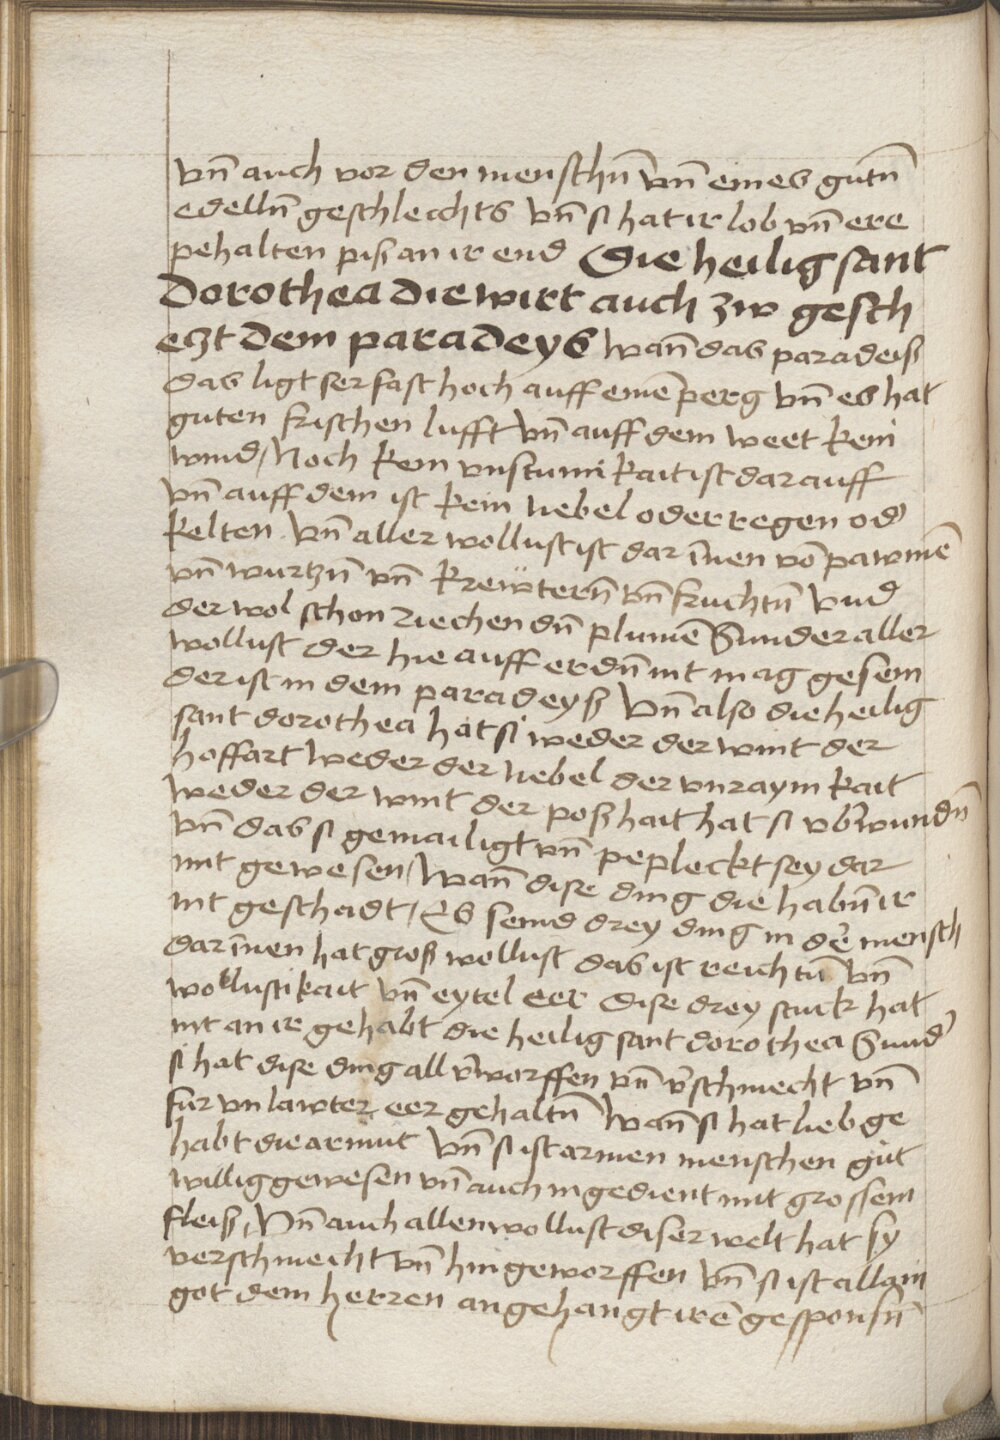 vn̄ auch vor den menschn̄ vn̄ eines gutn̄
edelln̄ geschlechts vn̄ si hat ir lob vn̄ ere
pehalten piß an ir end Die heilig sant
Dorothea die wirt auch zw gesch
eczt dem paradeys wan̄ das paradeiß
das ligt ser fast hoch auff einē perg vn̄ es hat
guten frischen lufft vn̄ auff dem weet kein
wind / Noch kein vnstumikait ist darauff
vn̄ auff dem ist kein nebel oder regen od̄
kelten vn̄ aller wollust ist dar īnen vō pawmē
vn̄ wurtzn̄ vn̄ krewtern̄ vn̄ fruchtn̄ vnd
der wol schon riechendn̄ plumē Sunder aller
wollust der hie auff erdn̄ nit mag gesein
der ist in dem paradeyß vn̄ also die heilig
sant dorothea hat si weder der wint der
hoffart weder der nebel der vnraynikait
weder der wint der poßhait hat si vb̄wundn̄
vn̄ das si gemailigt vn̄ pepleckt sey dar
mit gewesen / Wan̄ dise ding die habn̄ ir
nit geschadt / Es seind drey ding in dē mensch
dar īnen hat groß wollust das ist reichtū vn̄
wollustikait vn̄ eytel eer Dise drey stuck hat
nit an ir gehabt die heilig sant dorothea Sund̄
si hat dise ding all v̄worffen vn̄ v̄schmecht vn̄
fur vnlawter eer gehaltn̄ Wan̄ si hat lieb ge
habt die armut vn̄ si ist armen menschen gut
willig gewesen vn̄ auch in gedient mit grossem
fleiß / Vn̄ auch allen wollust diser welt hat sy
verschmecht vn̄ hin geworffen vn̄ si ist allain
got dem herren angehangt irē gesponsn̄